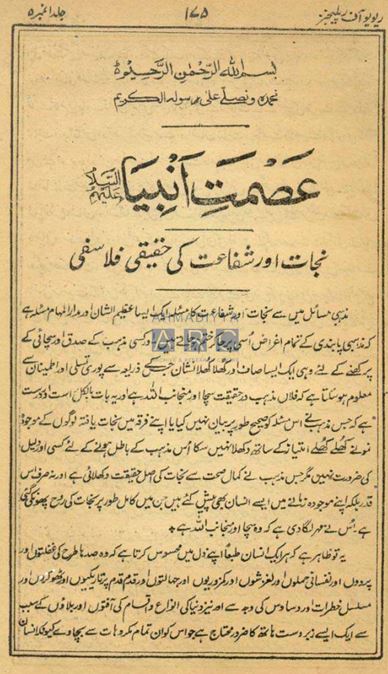 ریویو آف ریلیجنز ۱۷۵ جلد ۱ نمبر ۵
بسم اللہ الرّحمٰن الرّحیم
نحمدہ و نصلّے علیٰ رسولہ الکریم
عصمتِ اَنبیا علیہم السّلام
نجات اور شفاعت کی حقیقی فلاسفی
مذہبی مسائل میں سے نجات اور شفاعت کا مسئلہ ایک ایسا عظیم الشان اور مدار المہام مسئلہ ہے
کہ مذہبی پابندی کے تمام اغراض اُسی پر جا کر ختم ہو جاتے ہیں اور کسی مذہب کے صدق اور سچائی کے
پرکھنے کے لئے وہی ایک ایسا صاف اور کھلا کھلا نشان ہے جس کے ذریعہ سے پوری تسلی اور اطمینان سے
معلوم ہو سکتا ہے کہ فلاں مذہب درحقیقت سچا اور منجانب اللہ ہے اور یہ بات بالکل راست اور درست
ہے کہ جس مذہب نے اس مسئلہ کو صحیح طور پر بیان نہیں کیا یا اپنے فرقہ میں نجات یافتہ لوگوں کے موجودہ
نمونے کھلے کھلے امتیاز کے ساتھ دکھلا نہیں سکا اُس مذہب کے باطل ہونے کے لئے کسی اور دلیل
کی ضرورت نہیں مگر جس مذہب نے کمال صحت سے نجات کی اصل حقیقت دکھلائی ہے اور نہ صرف اس
قدر بلکہ اپنے موجودہ زمانے میں ایسے انسان بھی پیش کئے ہیں جن میں کامل طور پر نجات کی روح پھونکی گئی
ہے اُس نے مہر لگا دی ہے کہ وہ سچا اور منجانب اللہ ہے۔
یہ تو ظاہر ہے کہ ہر ایک انسان طبعاً اپنے دل میں محسوس کرتا ہے کہ وہ صدہا طرح کی غفلتوں اور
پردوں اور نفسانی حملوں اور لغزشوں اور کمزوریوں اور جہالتوں اور قدم قدم پر تاریکیوں اور ٹھوکروں اور
مسلسل خطرات اور وساوس کی وجہ سے اور نیز دنیا کی انواع و اقسام کی آفتوں اور بلاؤں کے سبب
سے ایک ایسے زبردست ہاتھ کا ضرور محتاج ہے جو اس کو ان تمام مکروہات سے بچاوے کیونکہ انسان
AHMADIYYA
ARC